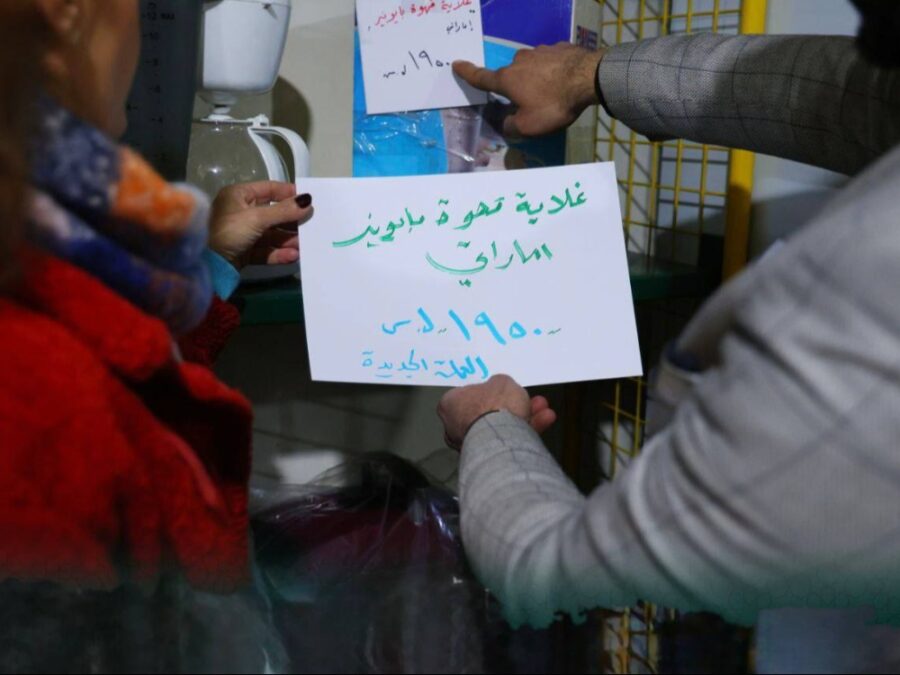 غلاية قهوة بايونير
إماراتي
١٩٥٠ ل.س
غلاية قهوة بايونير
اماراتي
١٩٥٠ ل.س
العملة الجديدة